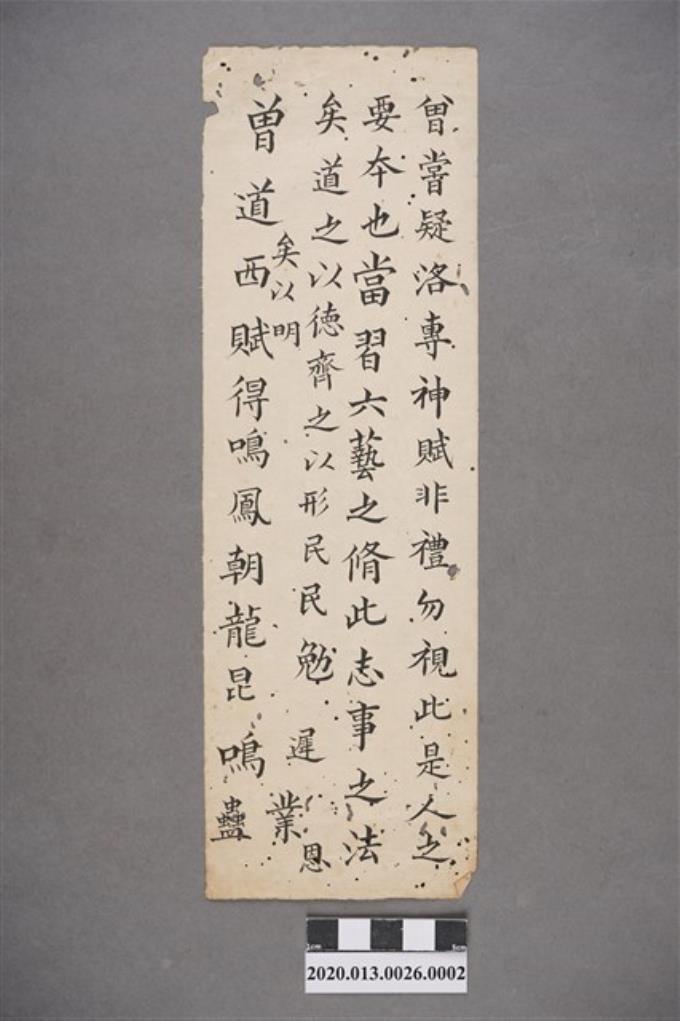 曾嘗疑洛專神賦非禮勿視此是人之
要夲也當習六藝之脩此志事之法
矣道之以德齊之以形民民勉遲恩
矣以明業
曽道西賦得鳴鳳朝龍昆鳴蠱
1cm 5cm
2020.013.0026.0002